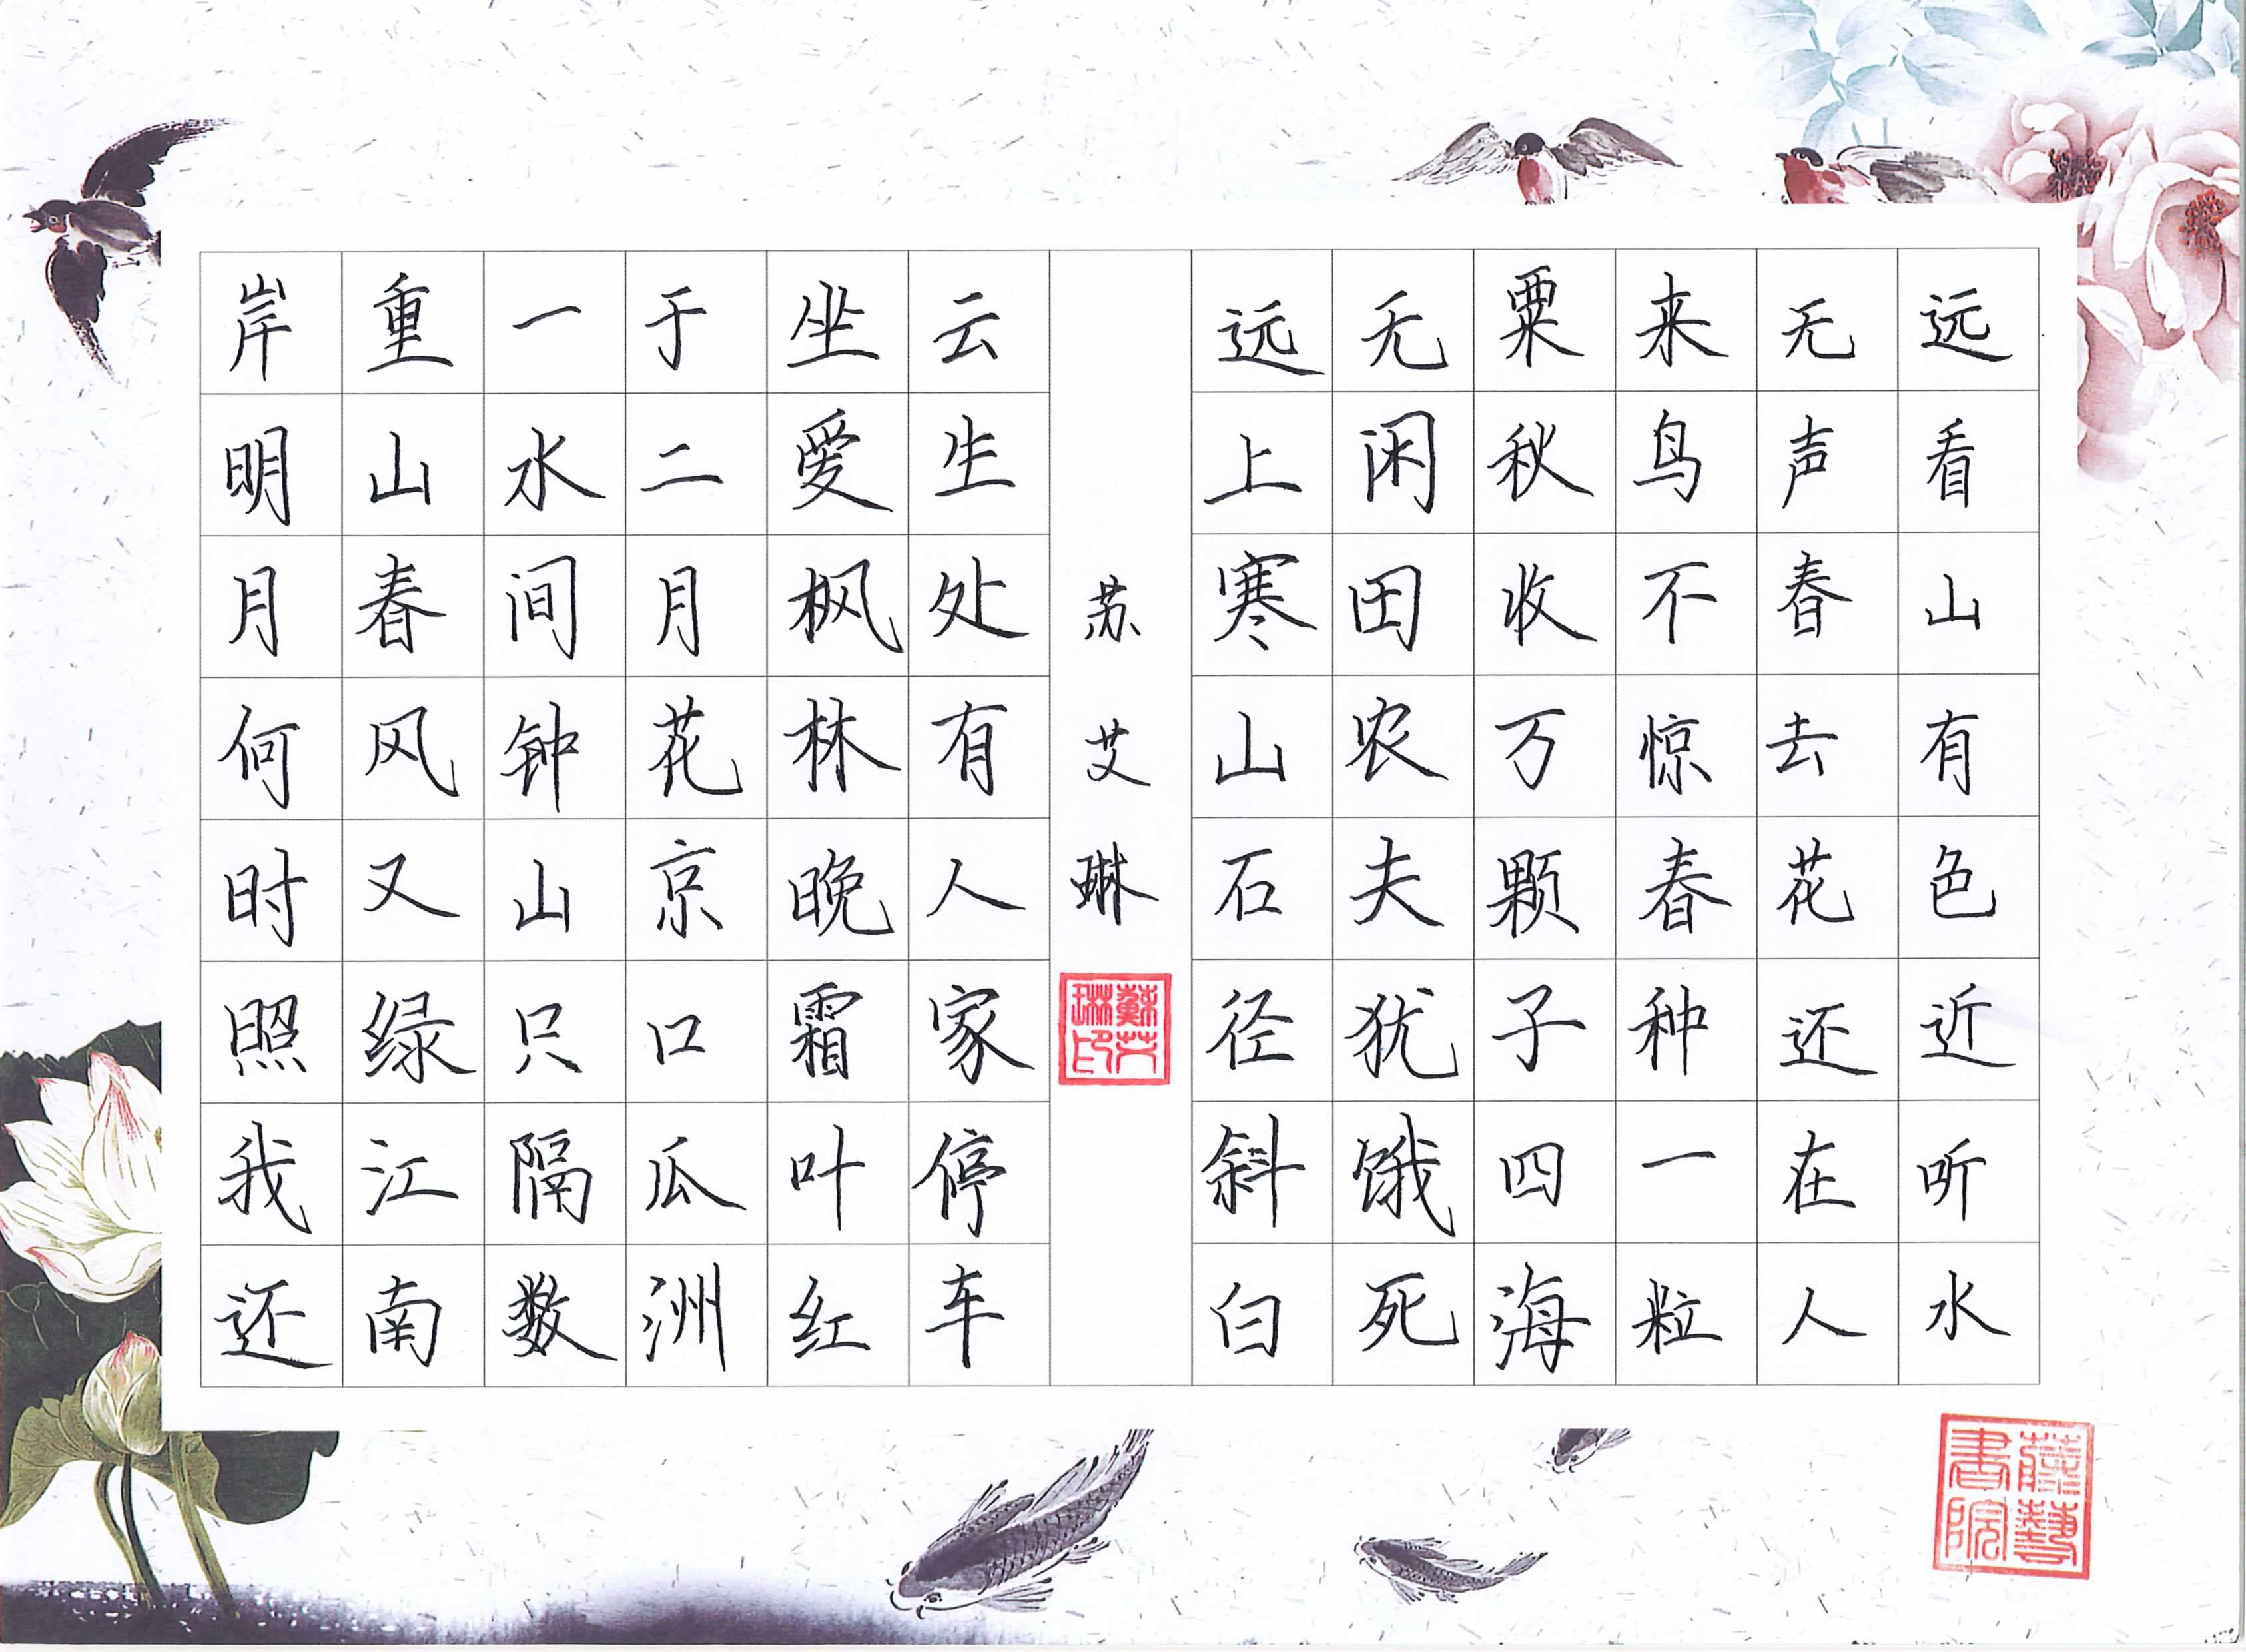 远看山有色近听水
无声春去花还在人
来鸟不惊春种一粒
粟秋收万颗子四海
无闲田农夫犹饿死
远上寒山石径斜白
苏艾琳
蘇艾琳印
云生处有人家停车
坐爱枫林晚霜叶红
于二月花京口瓜洲
一水间钟山只隔数
重山春风又绿江南
岸明月何时照我还
藤藝書院